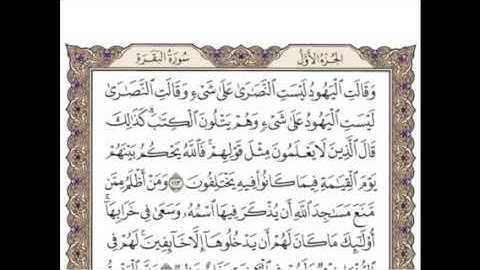 الجزء الأول
سورة البقرة
وَقَالَتِ ٱلْيَهُودُ لَيْسَتِ ٱلنَّصَٰرَىٰ عَلَىٰ شَىْءٍ وَقَالَتِ ٱلنَّصَٰرَىٰ
لَيْسَتِ ٱلْيَهُودُ عَلَىٰ شَىْءٍ وَهُمْ يَتْلُونَ ٱلْكِتَٰبَ ۗ كَذَٰلِكَ
قَالَ ٱلَّذِينَ لَا يَعْلَمُونَ مِثْلَ قَوْلِهِمْ ۚ فَٱللَّهُ يَحْكُمُ بَيْنَهُمْ
يَوْمَ ٱلْقِيَٰمَةِ فِيمَا كَانُوا۟ فِيهِ يَخْتَلِفُونَ ١١٣ وَمَنْ أَظْلَمُ مِمَّن
مَّنَعَ مَسَٰجِدَ ٱللَّهِ أَن يُذْكَرَ فِيهَا ٱسْمُهُۥ وَسَعَىٰ فِى خَرَابِهَآ ۚ
أُو۟لَٰٓئِكَ مَا كَانَ لَهُمْ أَن يَدْخُلُوهَآ إِلَّا خَآئِفِينَ ۚ لَهُمْ فِى